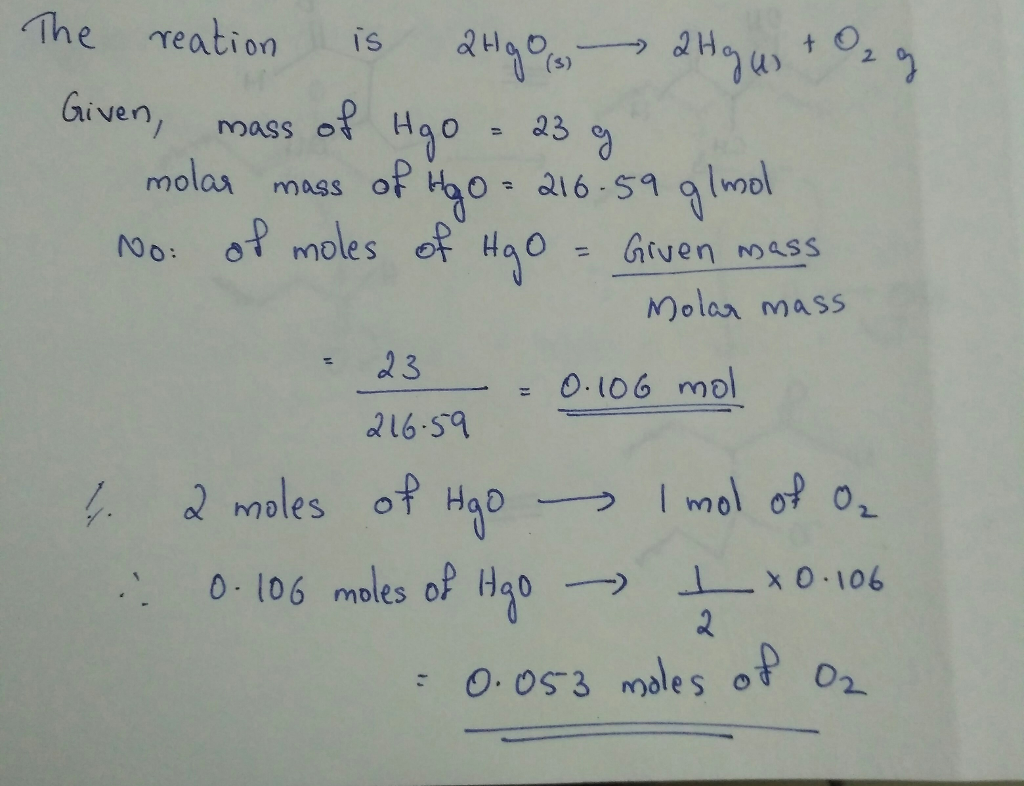 The reation is 2HgO(s) → 2Hg(l) + O2 g
Given, mass of HgO = 23 g
molar mass of HgO = 216.59 g/mol
No: of moles of HgO = Given mass
Molar mass
= 23 = 0.106 mol
216.59
2 moles of HgO → 1 mol of O2
∴ 0.106 moles of HgO → 1 x 0.106
2
= 0.053 moles of O2